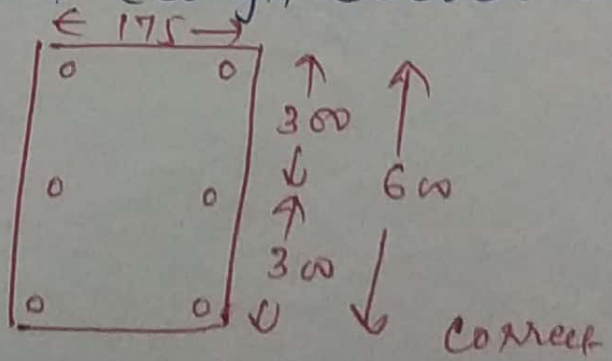 175
300
600
300
correct